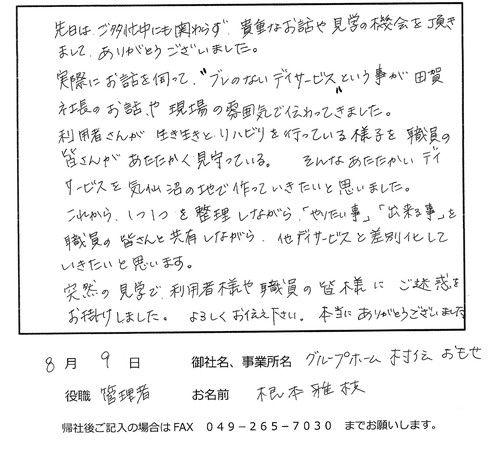 先日は、ご多忙中にも関わらず、貴重なお話や見学の機会を頂き
まして、ありがとうございました。
実際にお話を伺って、"ブレのないデイサービス"という事が田賀
社長のお話や現場の雰囲気で伝わってきました。
利用者さんが生き生きとリハビリを行っている様子を職員の
皆さんがあたたかく見守っている。そんなあたたかいデイ
サービスを気仙沼の地で作っていきたいと思いました。
これから、1つ1つを整理しながら、「やりたい事」「出来る事」を
職員の皆さんと共有しながら、他デイサービスと差別化して
いきたいと思います。
突然の見学で、利用者様や職員の皆様にご迷惑を
お掛けしました。よろしくお伝え下さい。本当にありがとうございました
8月9日 御社名、事業所名 グループホーム 村伝 おもせ
役職 管理者 お名前 根本雅枝
帰社後ご記入の場合はFAX 049-265-7030 までお願いします。